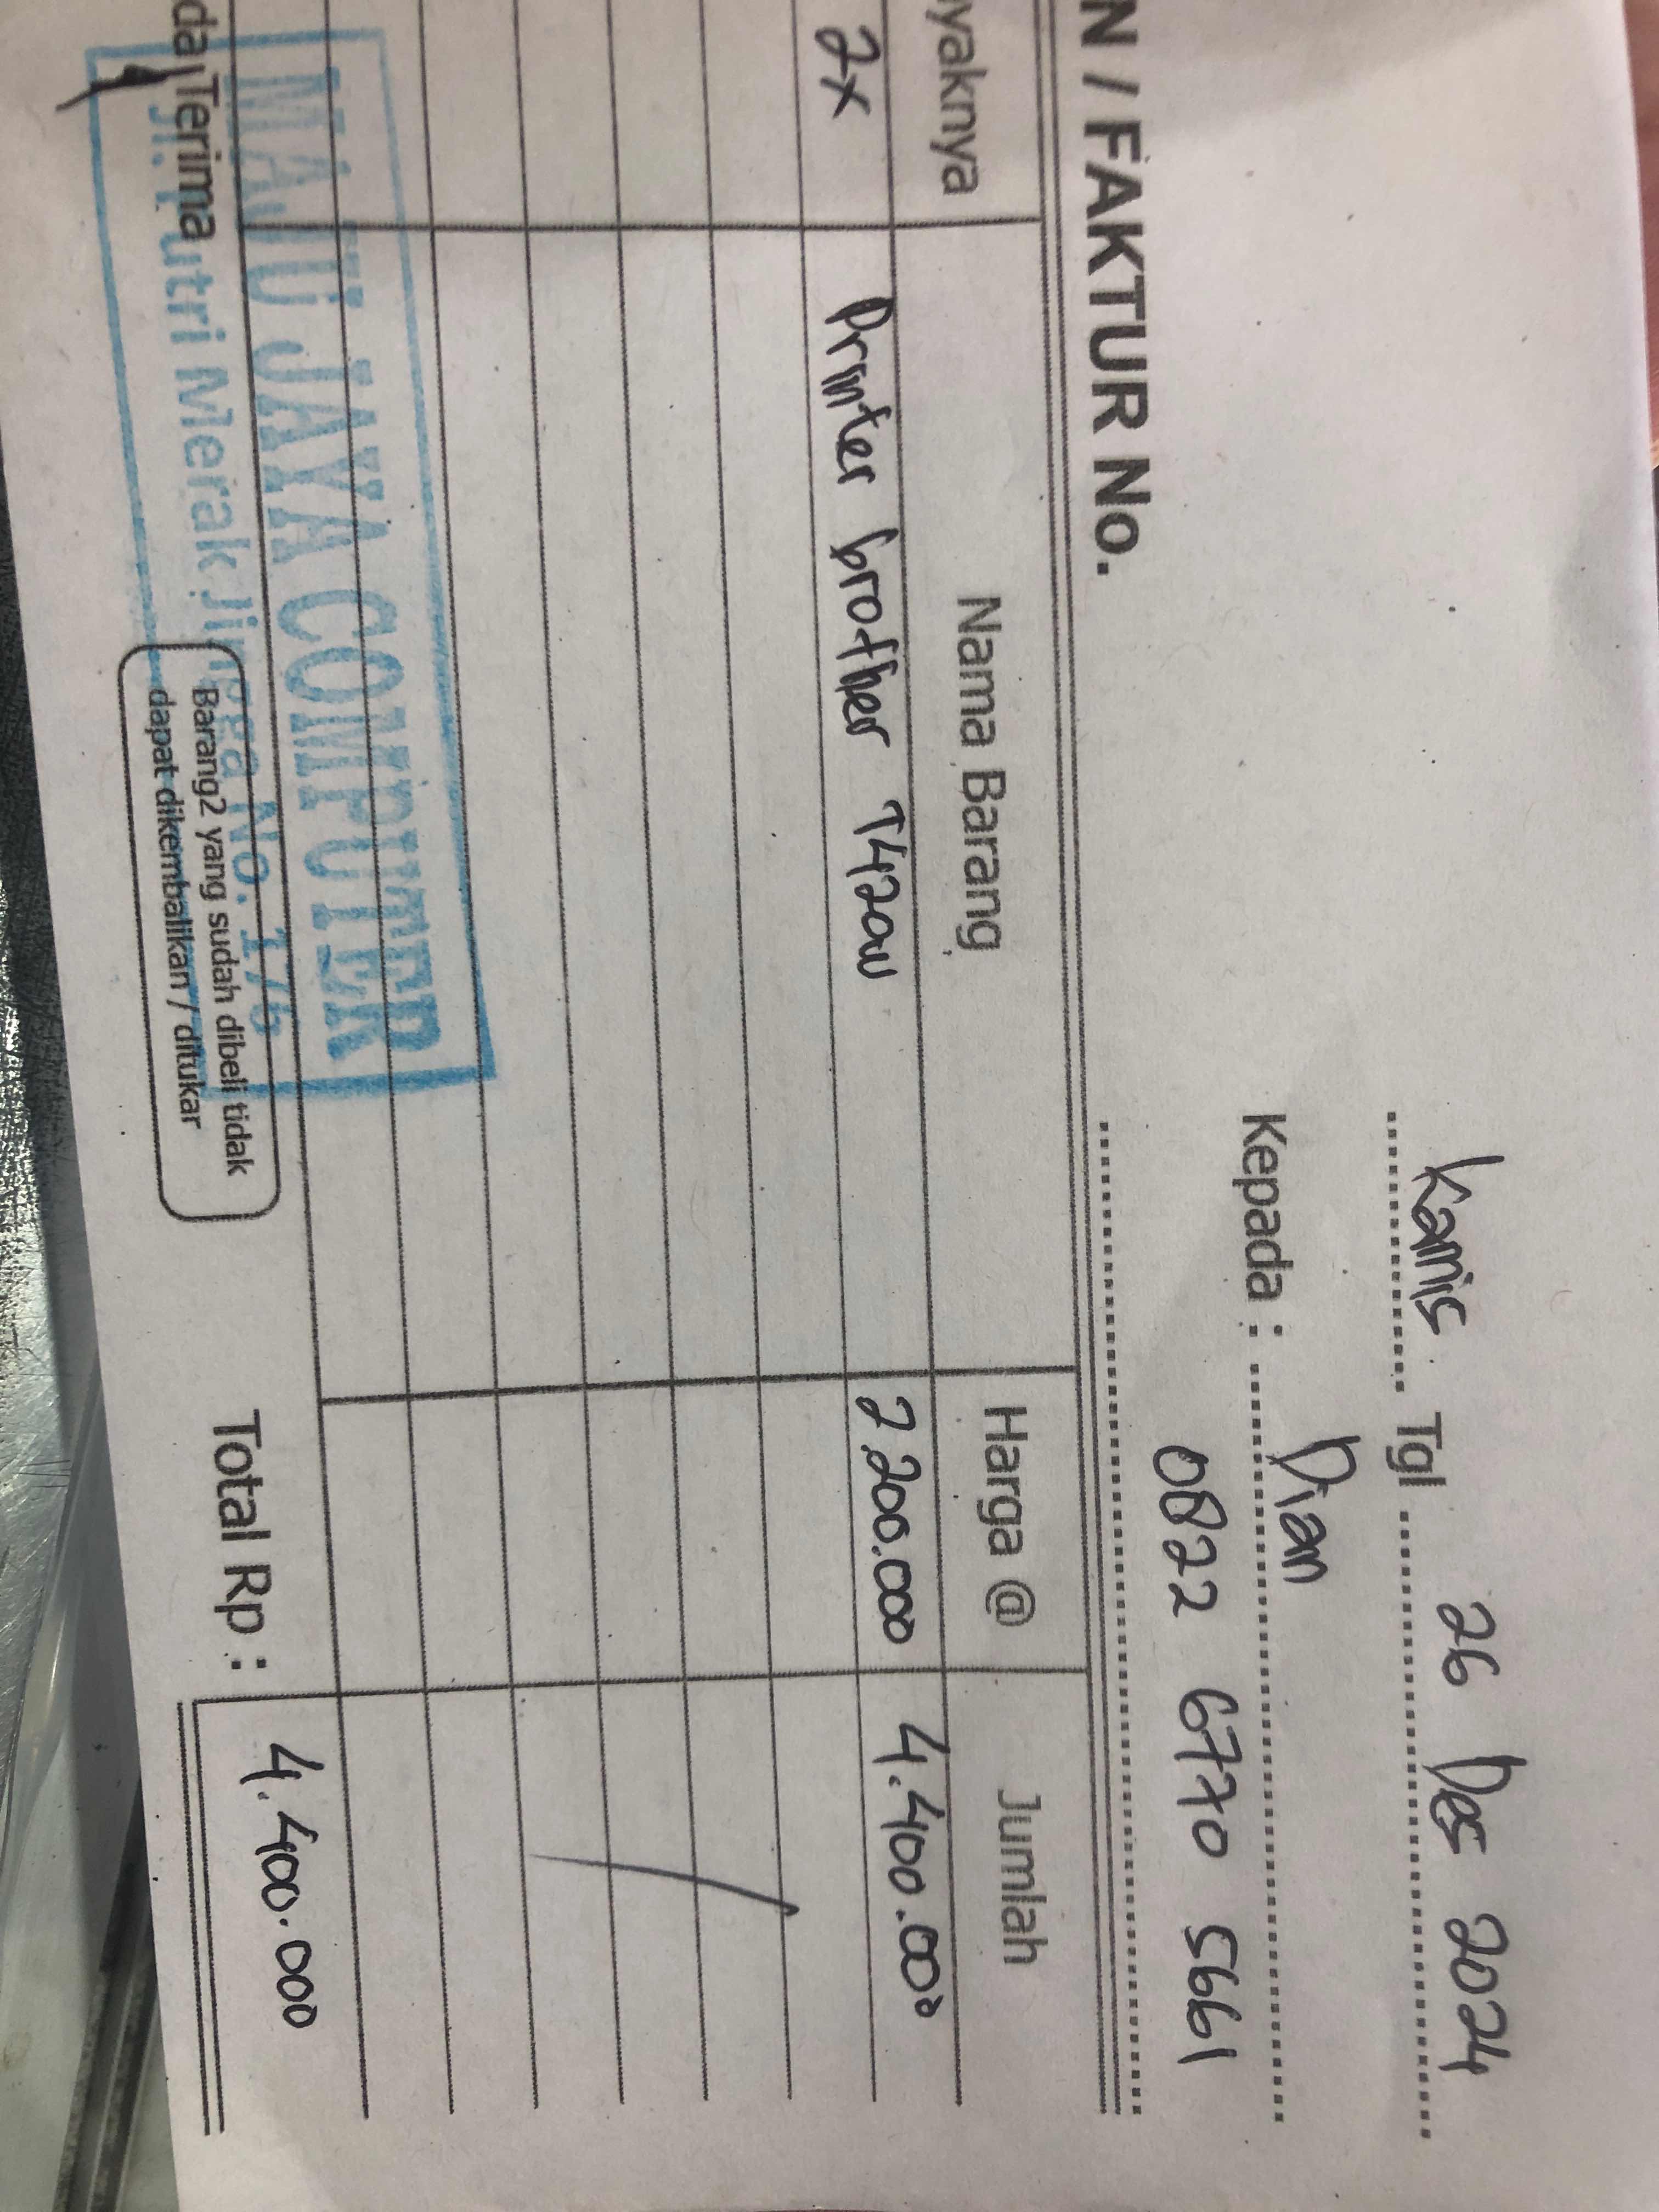 Kamis Tgl 26 Des 2024
Kepada : Dian
0822 6770 5661
N / FAKTUR No.
yaknya Nama Barang Harga @ Jumlah
2x Printer brother T420W 2.200.000 4.400.000
MAJU JAYA COMPUTER
Jl. Putri Merak Jingga No. 176
da Terima
Barang2 yang sudah dibeli tidak
dapat dikembalikan / ditukar
Total Rp : 4.400.000